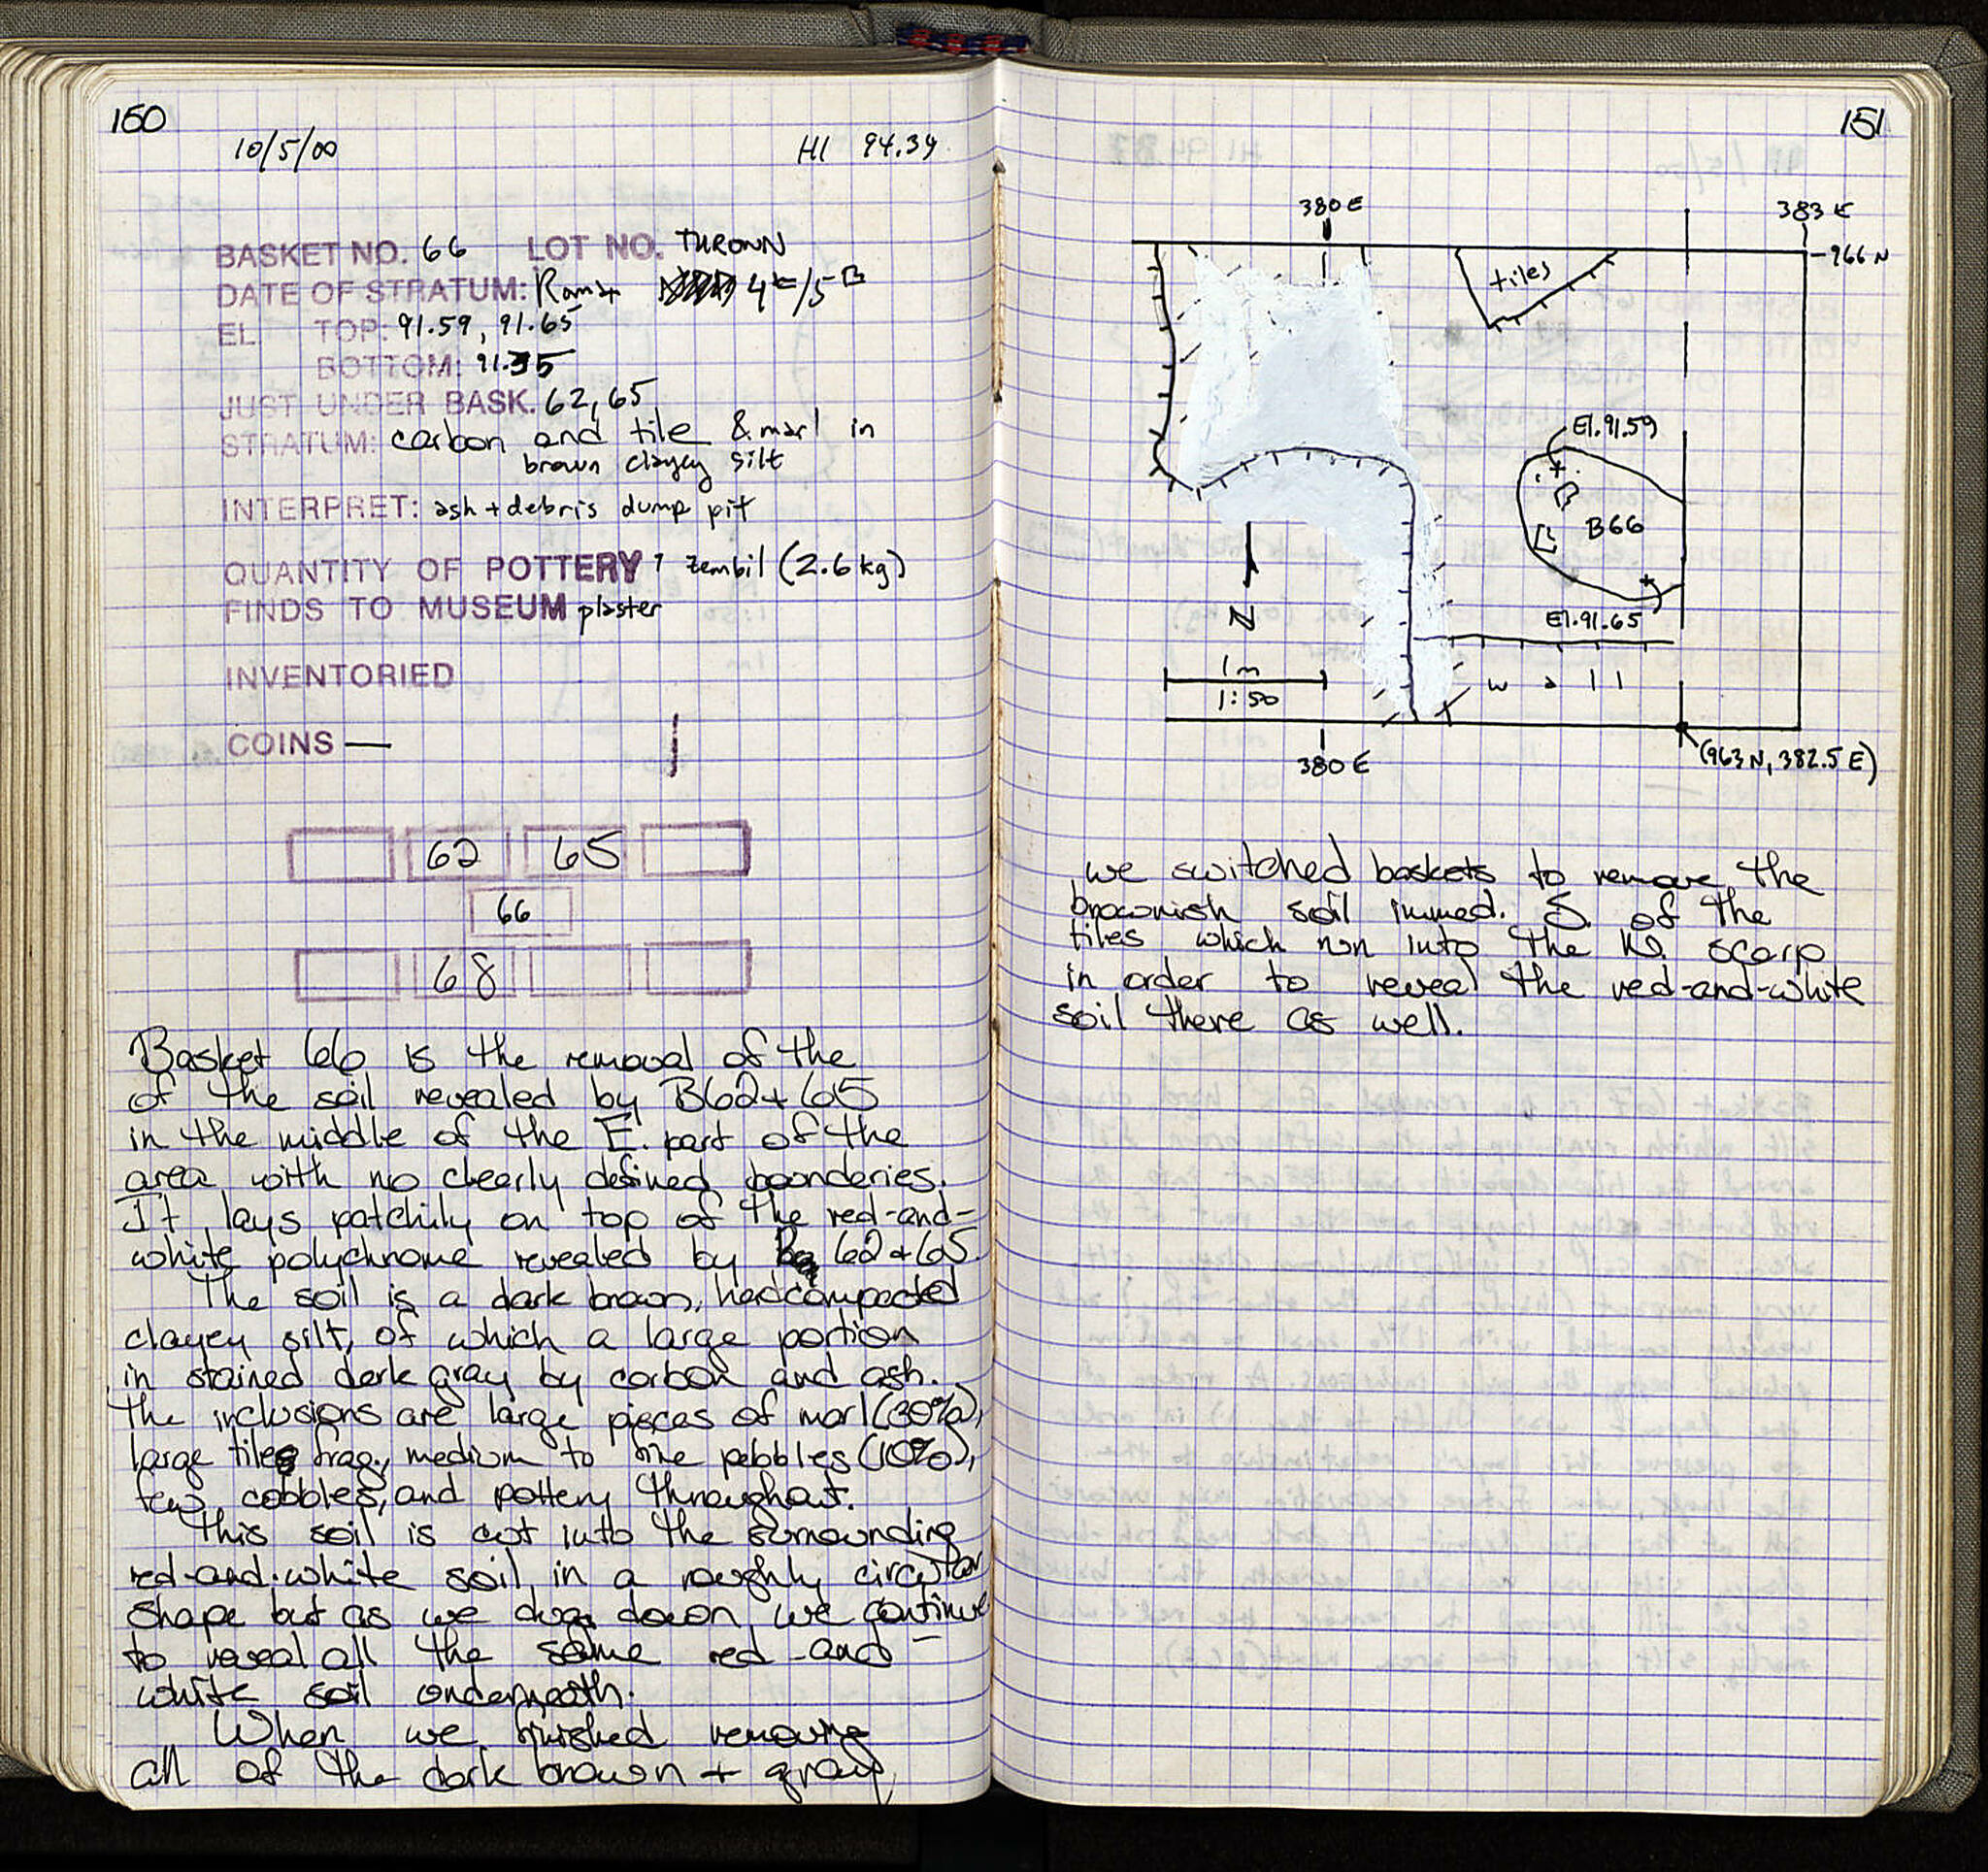 150
10/5/00 HI 94.34
BASKET NO. 66 LOT NO. THROWN
DATE OF STRATUM: Roman 4 /5
EL TOP: 91.59, 91.65
BOTTOM: 91.35
JUST UNDER BASK. 62, 65
STRATUM: carbon and tile & marl in
brown clayey silt
INTERPRET: ash + debris dump pit
QUANTITY OF POTTERY 1 zembil (2.6 kg)
FINDS TO MUSEUM plaster
INVENTORIED
COINS —
62 65
66
68
Basket 66 is the removal of the
of the soil revealed by B62 + 65
in the middle of the E. part of the
area with no clearly defined bounderies.
It lays patchily on top of the red-and-
white polychrome revealed by 62 + 65.
The soil is a dark brown, hard compacted
clayey silt, of which a large portion
in stained dark gray by carbon and ash.
The inclusions are large pieces of marl (30%),
large tile frag., medium to fine pebbles (10%),
few cobbles, and pottery throughout.
This soil is cut into the surrounding
red-and-white soil in a roughly circular
shape but as we dug down we continue
to reveal all the same red-and-
white soil underneath.
When we finished removing
all of the dark brown + gray
151
380 E 383 E
966 N
tiles
El. 91.59
B66
El. 91.65
N
1 m
1:50
wall
380 E
(963 N, 382.5 E)
we switched baskets to remove the
brownish soil immed. S. of the
tiles which run into the N. scarp
in order to reveal the red-and-white
soil there as well.